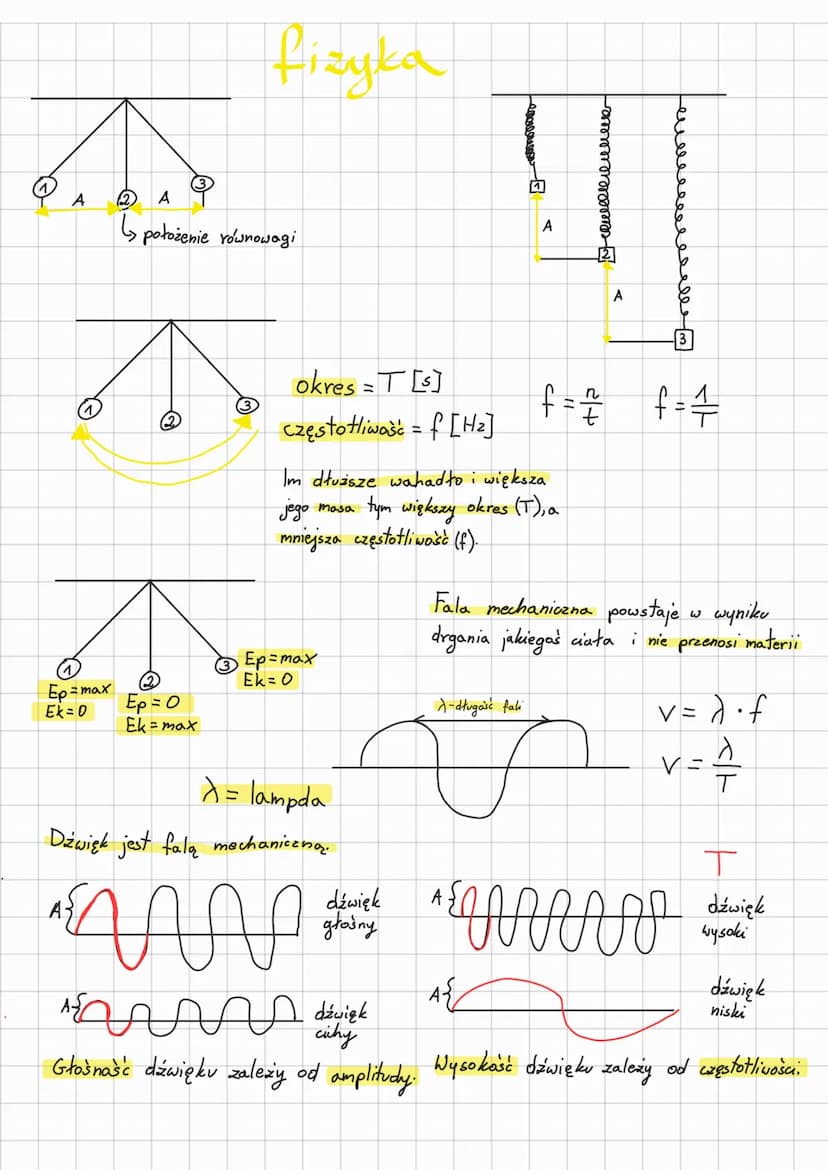 fizyka
1
2
3
A
A
położenie równowagi
1
2
3
A
A
1
2
3
okres = T [s]
częstotliwość = f [Hz]
f = n/t
f = 1/T
Im dłuższe wahadło i większa
jego masa tym większy okres (T), a
mniejsza częstotliwość (f).
1
2
3
Ep = max
Ek = 0
Ep = 0
Ek = max
Ep = max
Ek = 0
Fala mechaniczna powstaje w wyniku
drgania jakiegoś ciała i nie przenosi materii
λ - długość fali
v = λ · f
v = λ/T
λ = lampda
Dźwięk jest falą mechaniczną.
T
A{
dźwięk
głośny
A{
dźwięk
wysoki
A{
dźwięk
cichy
A{
dźwięk
niski
Głośność dźwięku zależy od amplitudy.
Wysokość dźwięku zależy od częstotliwości.